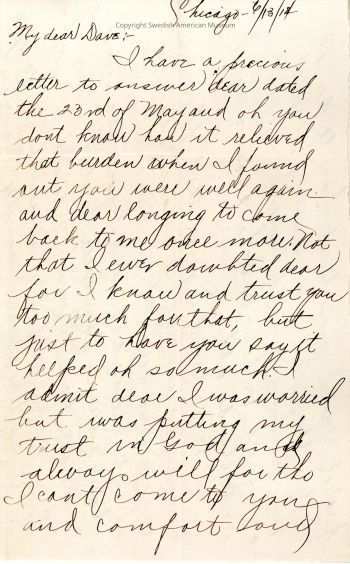 Chicago - 6/13/14
Copyright Swedish American Museum
My dear Dave:-
I have a precious
letter to answer dear dated
the 23rd of May and oh you
dont know how it relieved
that burden when I found
out you were well again
and dear longing to come
back to me once more. Not
that I ever doubted dear
for I know and trust you
too much for that, but
just to have you say it
helped oh so much. I
admit dear I was worried
but was putting my
trust in God and
always will for tho
I cant come to you
and comfort and